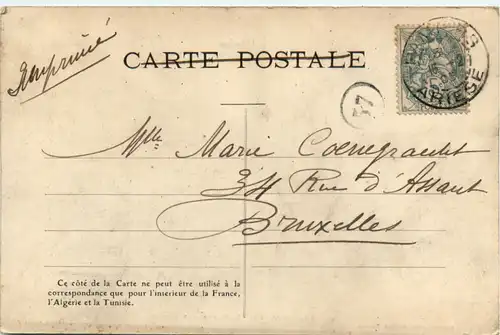 Imprimé
CARTE POSTALE
ARIEGE
Mlle Marie Coenegracht
34 Rue d'Assaut
Bruxelles
Ce côté de la Carte ne peut être utilisé à la
correspondance que pour l'interieur de la France,
l'Algérie et la Tunisie.